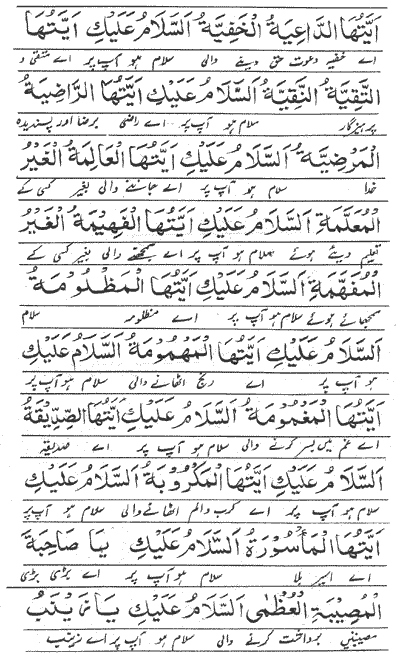 اَيَّتُهَا الدَّاعِيَةُ الْخَفِيَّةُ اَلسَّلَامُ عَلَيْكِ اَيَّتُهَا
اے خفیہ دعوت حق دینے والی سلام ہو آپ پر اے متقی و
التَّقِيَّةُ النَّقِيَّةُ اَلسَّلَامُ عَلَيْكِ اَيَّتُهَا الرَّاضِيَةُ
پرہیزگار سلام ہو آپ پر اے راضی برضا اور پسندیدہ
الْمَرْضِيَّةُ اَلسَّلَامُ عَلَيْكِ اَيَّتُهَا الْعَالِمَةُ الْغَيْرُ
خدا سلام ہو آپ پر اے جاننے والی بغیر کسی کے
الْمُعَلَّمَةِ اَلسَّلَامُ عَلَيْكِ اَيَّتُهَا الْفَهِيْمَةُ الْغَيْرُ
تعلیم دیئے ہوئے سلام ہو آپ پر اے سمجھنے والی بغیر کسی کے
الْمُفَهَّمَةِ اَلسَّلَامُ عَلَيْكِ اَيَّتُهَا الْمَظْلُوْمَةُ
سمجھائے ہوئے سلام ہو آپ پر اے مظلومہ سلام
اَلسَّلَامُ عَلَيْكِ اَيَّتُهَا الْمَهْمُوْمَةُ اَلسَّلَامُ عَلَيْكِ
ہو آپ پر اے رنج اٹھانے والی سلام ہو آپ پر
اَيَّتُهَا الْمَغْمُوْمَةُ اَلسَّلَامُ عَلَيْكِ اَيَّتُهَا الصِّدِّيْقَةُ
اے غم میں بسر کرنے والی سلام ہو آپ پر اے صدیقہ
اَلسَّلَامُ عَلَيْكِ اَيَّتُهَا الْمَكْرُوْبَةُ اَلسَّلَامُ عَلَيْكِ
سلام ہو آپ پر اے کرب و الم اٹھانے والی سلام ہو آپ پر
اَيَّتُهَا الْمَأْسُوْرَةُ اَلسَّلَامُ عَلَيْكِ يَا صَاحِبَةَ
اے اسیر بلا سلام ہو آپ پر اے بڑی بڑی
الْمُصِيْبَةِ الْعُظْمٰى اَلسَّلَامُ عَلَيْكِ يَا زَيْنَبُ
مصیبتیں برداشت کرنے والی سلام ہو آپ پر اے زینب